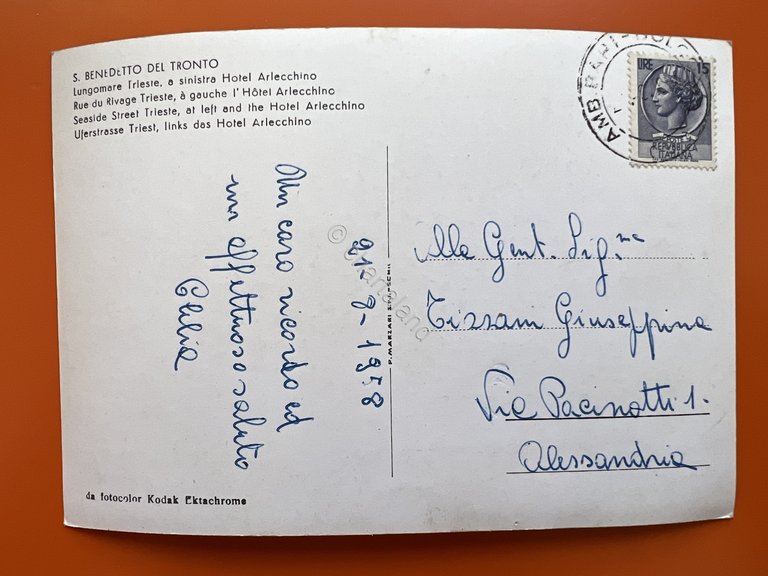 S. BENEDETTO DEL TRONTO
Lungomare Trieste, a sinistra Hotel Arlecchino
Rue du Rivage Trieste, à gauche l'Hôtel Arlecchino
Seaside Street Trieste, at left and the Hotel Arlecchino
Uferstrasse Triest, links das Hotel Arlecchino
Un caro ricordo ed
un affettuoso saluto
Clelia
21-8-1958
da fotocolor Kodak Ektachrome
© Cartaland
P. MARZARI S.R.L.-SCHIO
AMB BARI-BOLOGNA
LIRE 15
POSTE
REPVBBLICA
ITALIANA
Alle Gent. Sig.ne
Tizzani Giuseppina
Via Pacinotti 1.
Alessandria